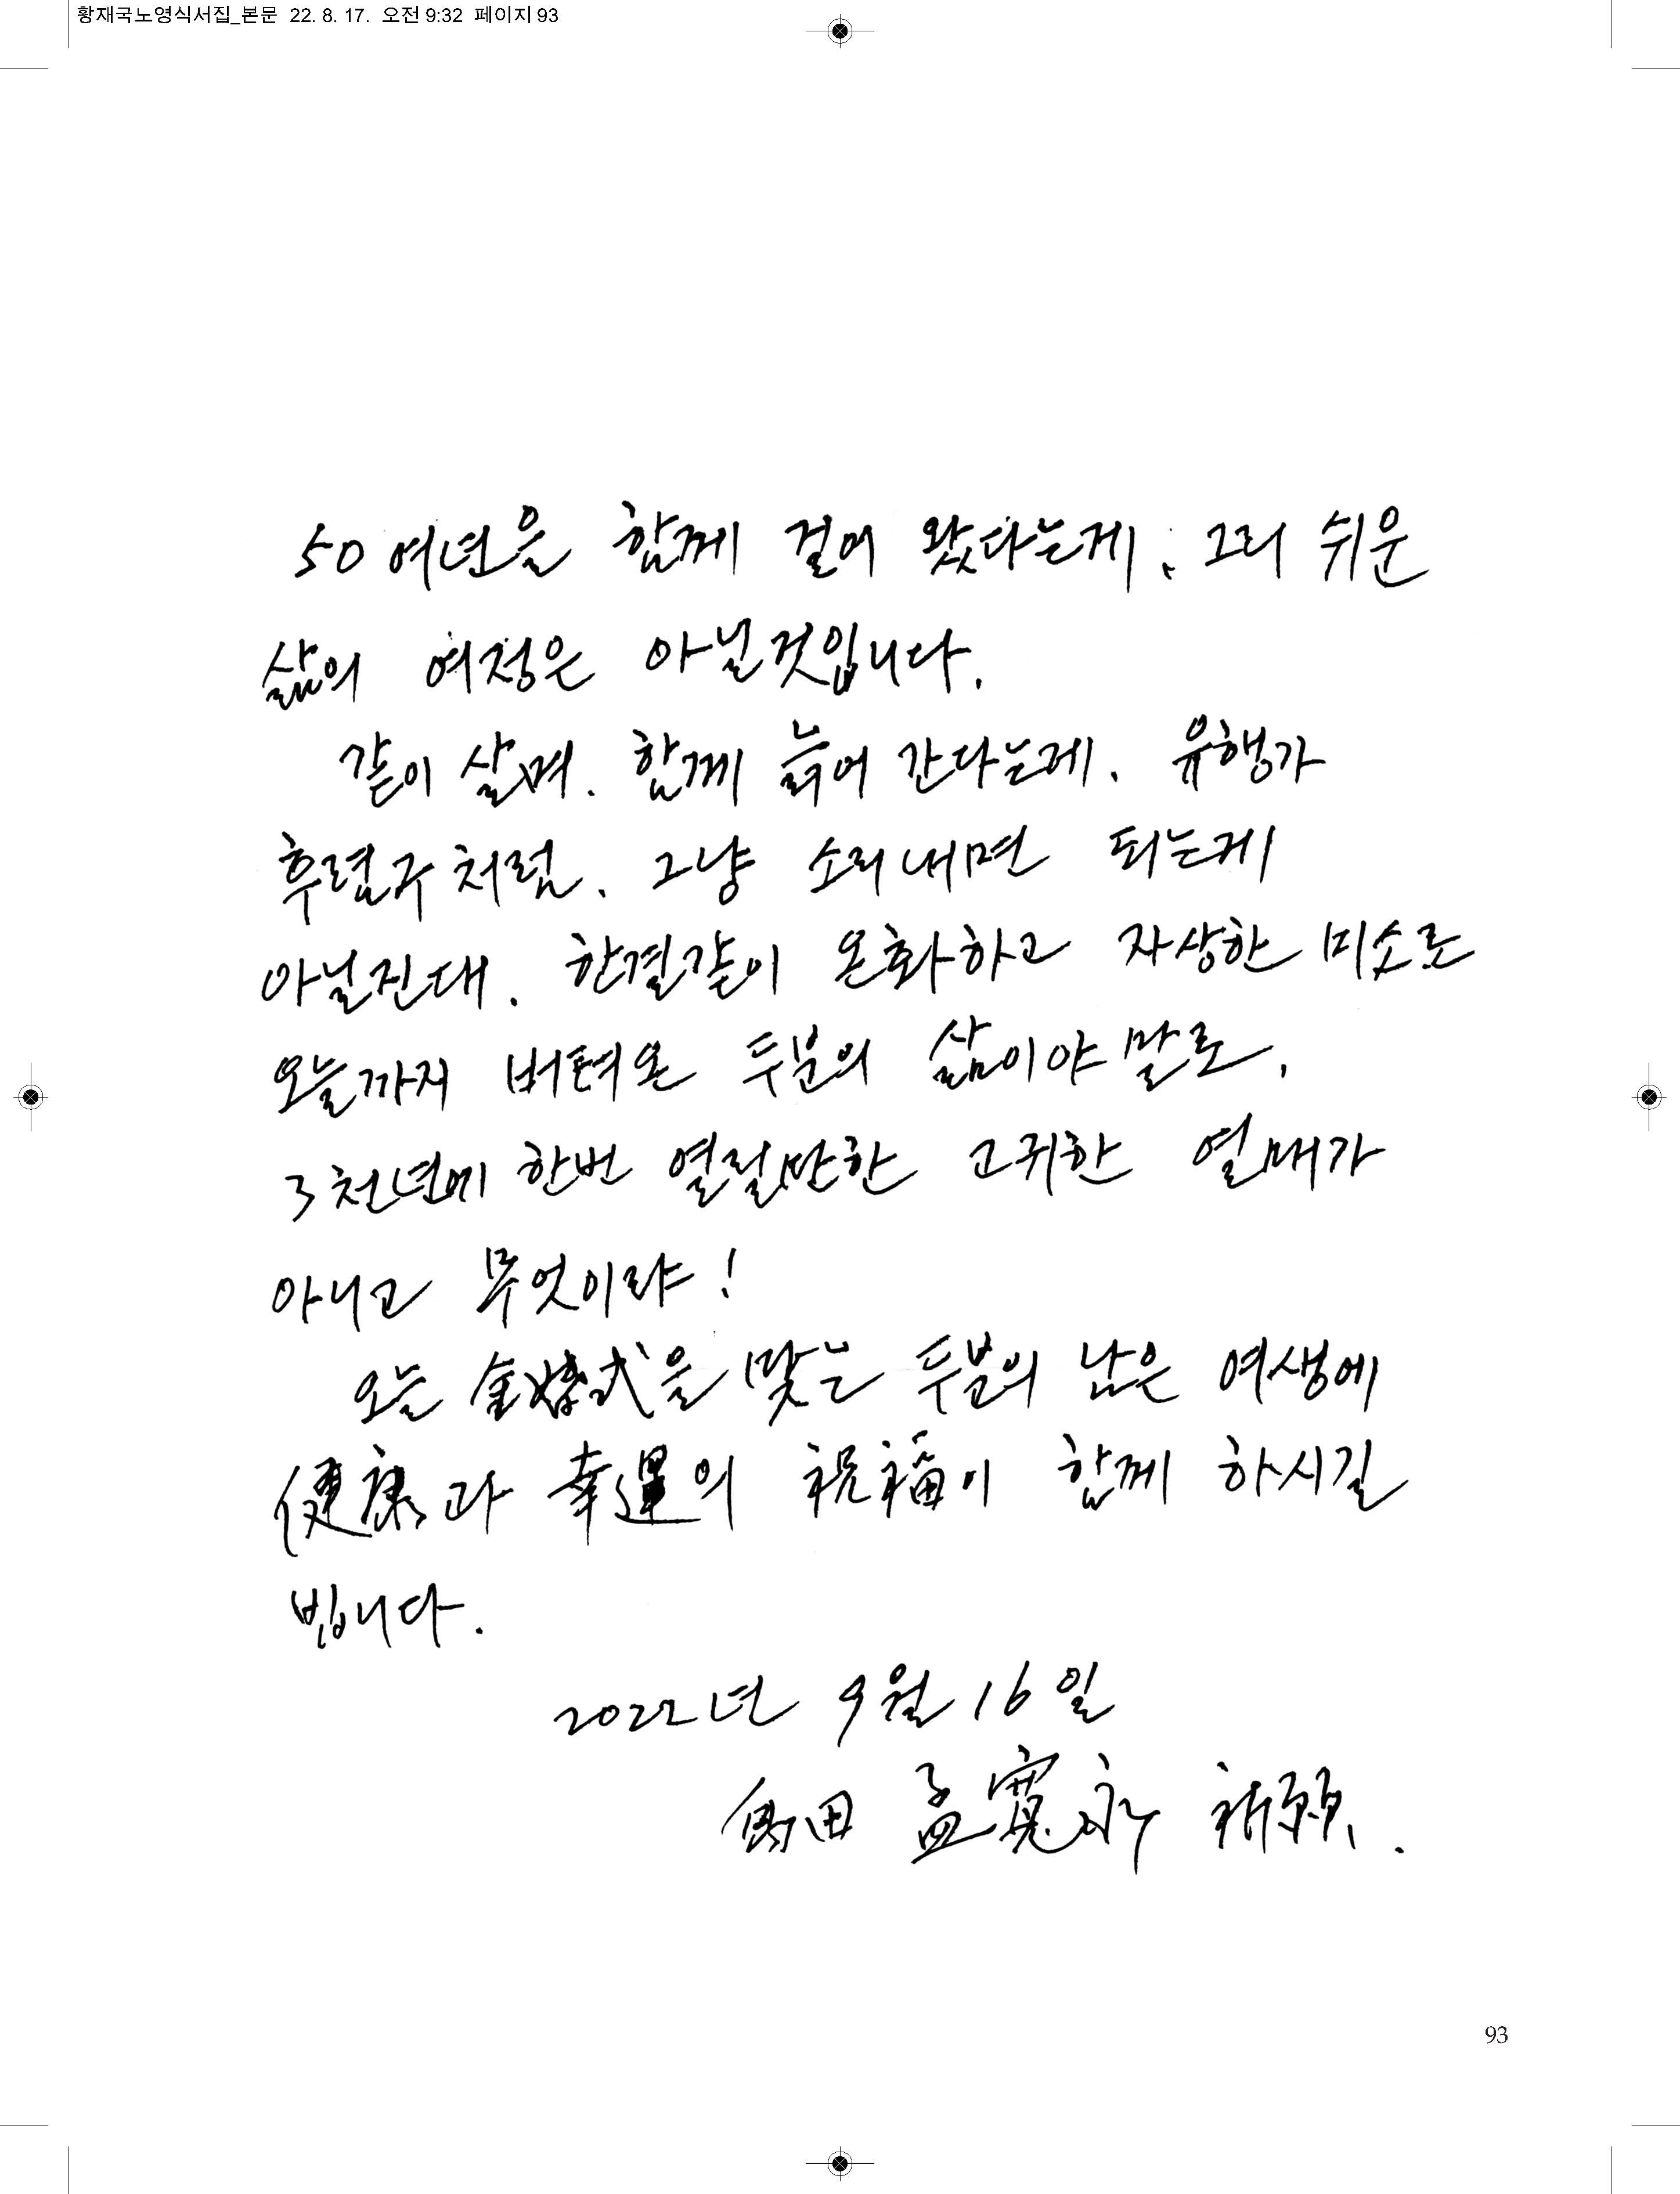 황재국노영식서집_본문 22. 8. 17. 오전 9:32 페이지 93
50여년을 함께 걸어 왔다는게, 그리 쉬운
삶의 여정은 아닐것입니다.
같이 살며. 함께 늙어 간다는게. 유행가
후렴구처럼. 그냥 소리내면 되는게
아닐진대. 한결같이 온화하고 자상한 미소로
오늘까지 버텨온 두분의 삶이야말로,
3천년에 한번 열릴만한 고귀한 열매가
아니고 무엇이랴!
오늘 金婚式을 맞는 두분의 남은 여생에
健康과 幸運의 祝福이 함께 하시길
빕니다.
2022년 9월 16일
田 孟寬永 祈願.
93